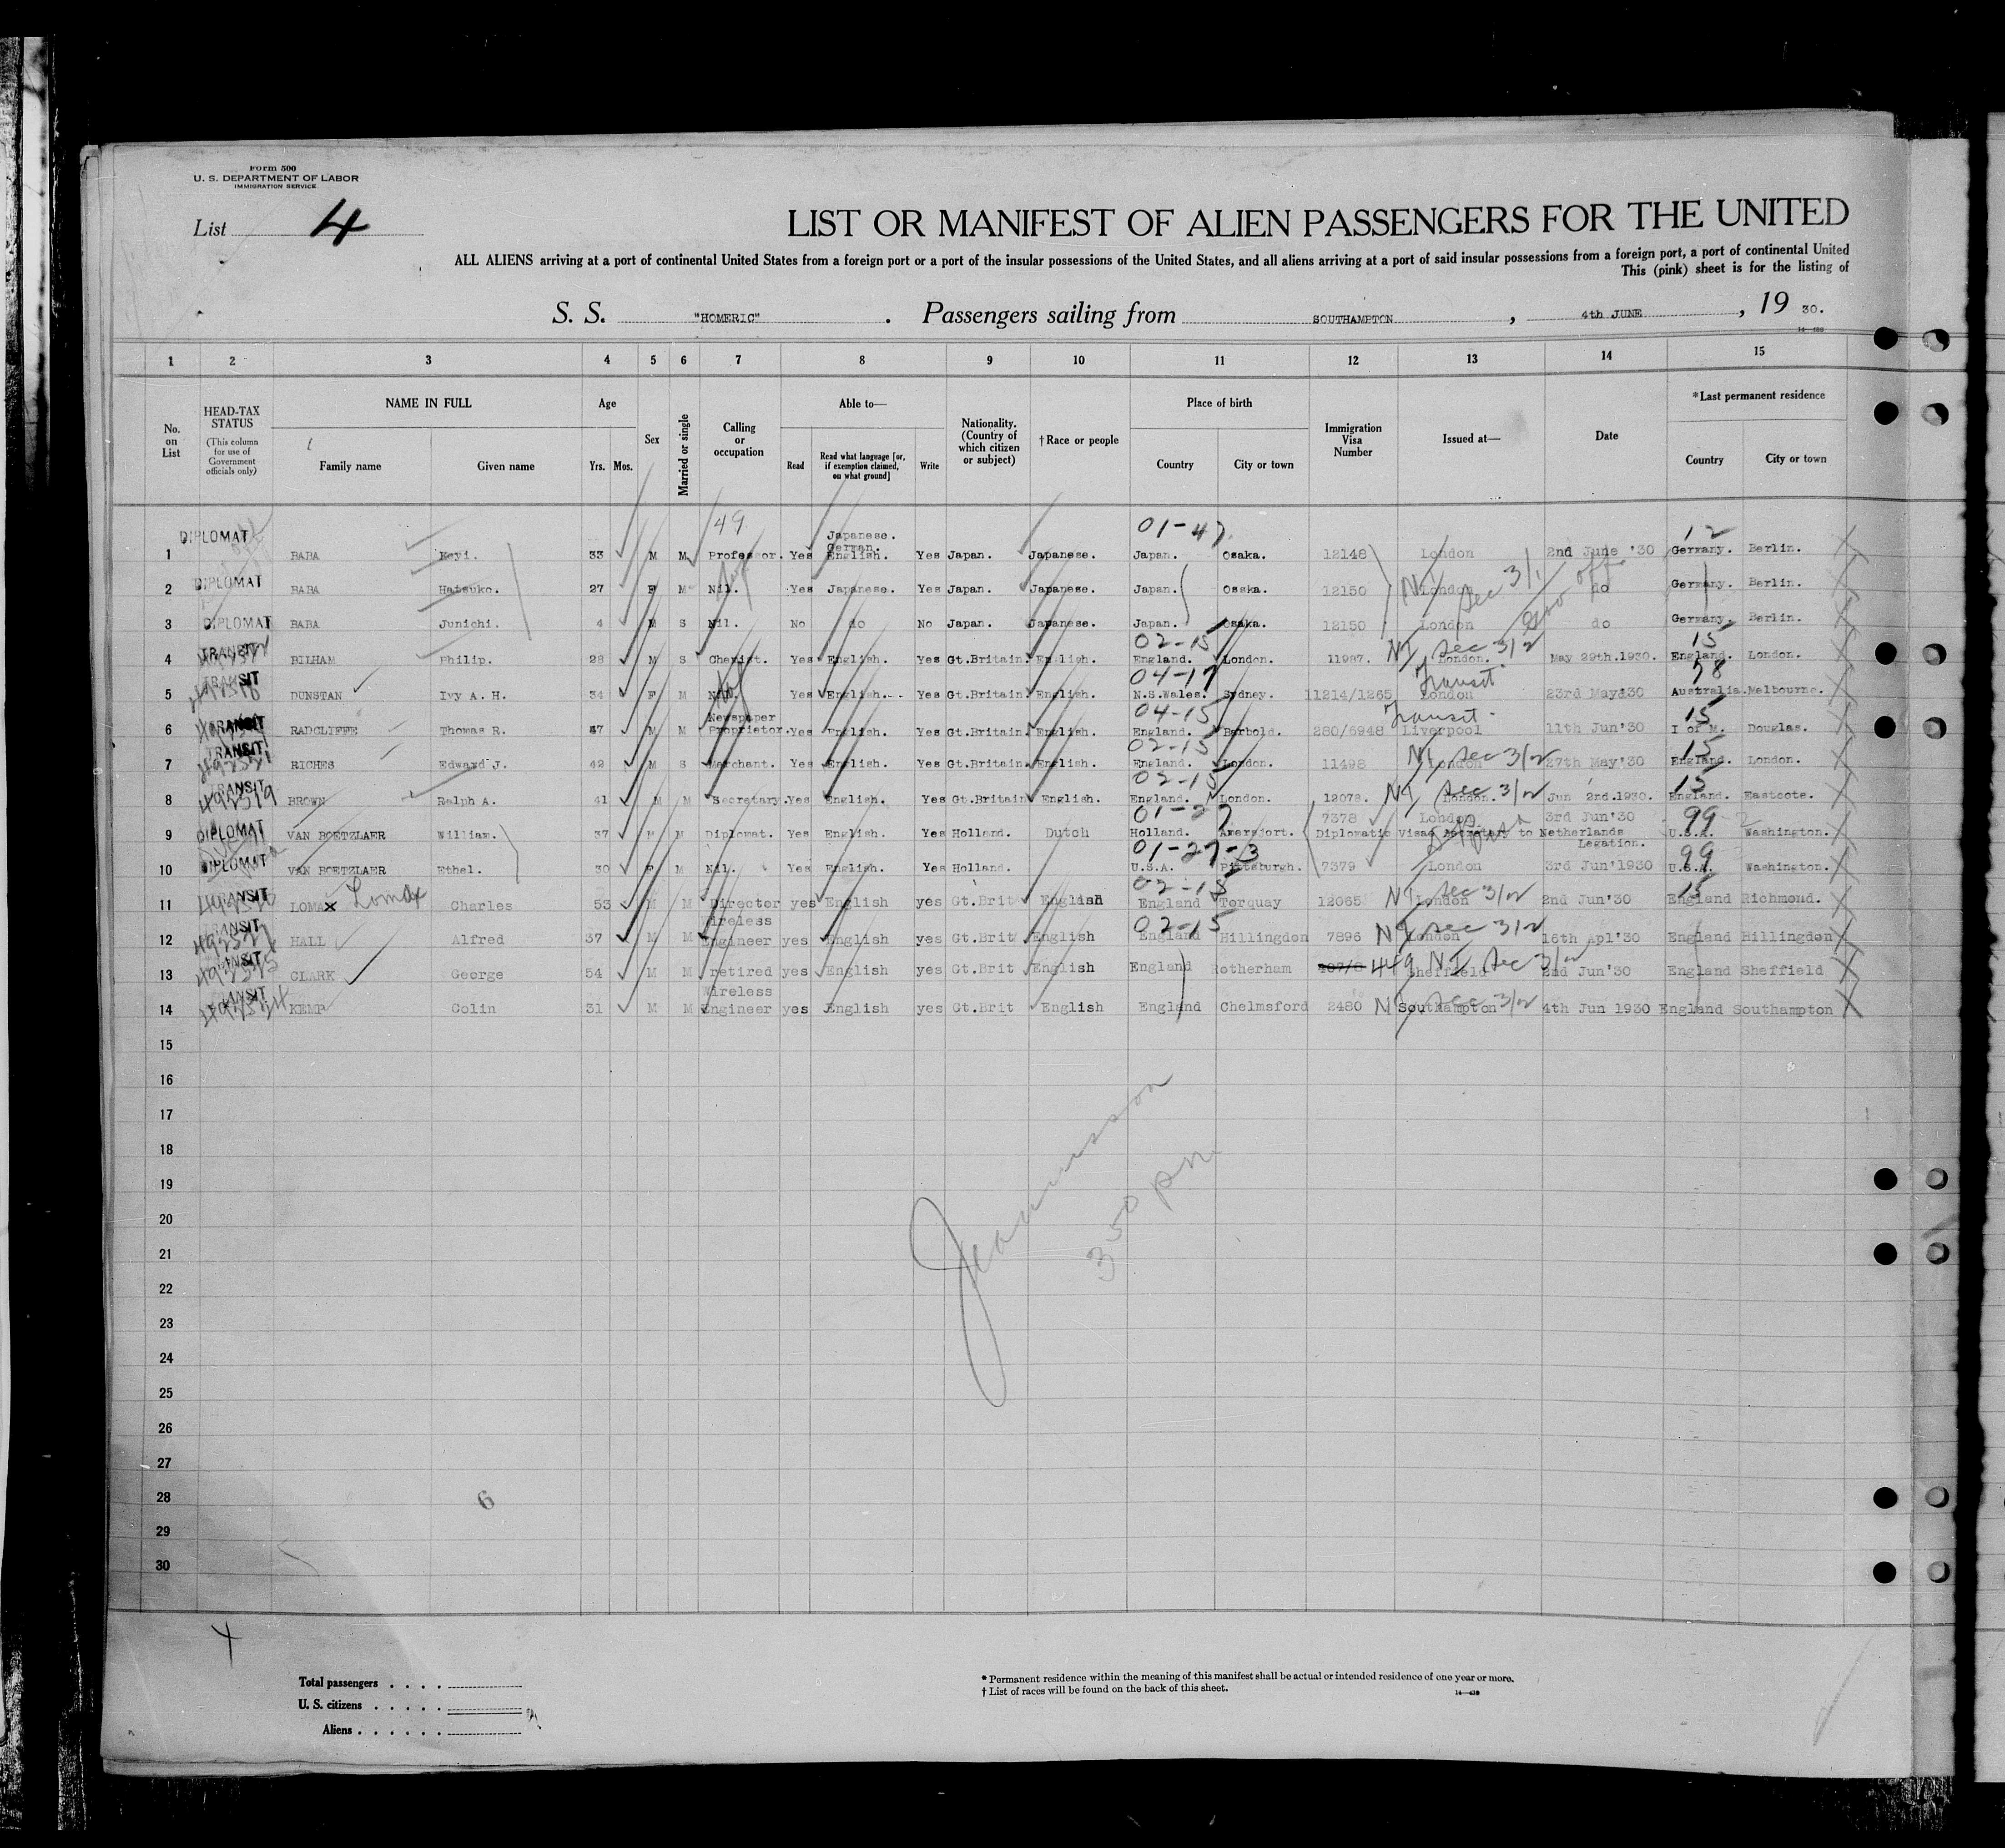 Form 500
U. S. DEPARTMENT OF LABOR
IMMIGRATION SERVICE
List 4
LIST OR MANIFEST OF ALIEN PASSENGERS FOR THE UNITED
ALL ALIENS arriving at a port of continental United States from a foreign port or a port of the insular possessions of the United States, and all aliens arriving at a port of said insular possessions from a foreign port, a port of continental United
This (pink) sheet is for the listing of
S. S. "HOMERIC". Passengers sailing from SOUTHAMPTON, 4th JUNE, 19 30.
1 2 3 4 5 6 7 8 9 10 11 12 13 14 15
No. on List
HEAD-TAX STATUS (This column for use of Government officials only)
NAME IN FULL Family name Given name
Age Yrs. Mos.
Sex
Married or single
Calling or occupation
Able to— Read Read what language [or, if exemption claimed, on what ground] Write
Nationality. (Country of which citizen or subject)
†Race or people
Place of birth Country City or town
Immigration Visa Number
Issued at—
Date
*Last permanent residence Country City or town
49 01-47 12
1 DIPLOMAT BABA Keyi. 33 M M Professor. Yes Japanese. German. English. Yes Japan. Japanese. Japan. Osaka. 12148 London 2nd June '30 Germany. Berlin.
2 DIPLOMAT BABA Hatsuko. 27 F M Nil. Yes Japanese. Yes Japan. Japanese. Japan. Osaka. 12150 London do Germany. Berlin.
NI Sec 3/1 Gov off
3 DIPLOMAT BABA Junichi. 4 M S Nil. No do No Japan. Japanese. Japan. Osaka. 12150 London do Germany. Berlin.
02-15 NI Sec 3/2 15
4 TRANSIT BILHAM Philip. 28 M S Chemist. Yes English. Yes Gt.Britain. English. England. London. 11987. London. May 29th.1930. England. London.
04-17 Transit 78
5 TRANSIT DUNSTAN Ivy A. H. 34 F M Yes English. Yes Gt.Britain. English. N.S.Wales. Sydney. 11214/1265 London 23rd May'30 Australia. Melbourne.
04-15 Transit 15
6 TRANSIT RADCLIFFE Thomas R. 47 M M Newspaper Proprietor. Yes English. Yes Gt.Britain. English. England. Barbold. 280/6948 Liverpool 11th Jun'30 I of M. Douglas.
02-15 NI Sec 3/2 15
7 TRANSIT RICHES Edward J. 42 M S Merchant. Yes English. Yes Gt.Britain. English. England. London. 11498 London 27th May'30 England. London.
02-15 NI Sec 3/2 15
8 TRANSIT 492519 BROWN Ralph A. 41 M M Secretary. Yes English. Yes Gt.Britain English. England. London. 12078. London. Jun 2nd.1930. England. Eastcote.
01-27 99-2
9 DIPLOMAT VAN BOETZLAER William. 37 M M Diplomat. Yes English. Yes Holland. Dutch Holland. Amersfort. 7378 London 3rd Jun'30 Diplomatic Visa. Secretary to Netherlands Legation. U.S.A. Washington.
01-27-3 99
10 DIPLOMAT VAN BOETZLAER Ethel. 30 F M Nil. Yes English. Yes Holland. U.S.A. Pittsburgh. 7379 London 3rd Jun'1930 U.S.A. Washington.
02-15 NI Sec 3/2 15
11 TRANSIT LOMAX Lomax Charles 53 M M Director yes English yes Gt.Brit English England Torquay 12065 London 2nd Jun'30 England Richmond.
02-15 NI Sec 3/2
12 TRANSIT HALL Alfred 37 M M Wireless Engineer yes English yes Gt.Brit English England Hillingdon 7896 London 16th Apl'30 England Hillingdon
13 TRANSIT CLARK George 54 M M retired yes English yes Gt.Brit English England Rotherham 449 NI Sec 3/2 Sheffield 2nd Jun'30 England Sheffield
14 TRANSIT KEMP Colin 31 M M Wireless Engineer yes English yes Gt.Brit English England Chelmsford 2480 NI Sec 3/2 Southampton 4th Jun 1930 England Southampton
15
16
17
18
19
20
21
22
23
24
25
26
27
28
29
30
350 pm
6
Total passengers
U. S. citizens
Aliens
* Permanent residence within the meaning of this manifest shall be actual or intended residence of one year or more.
† List of races will be found on the back of this sheet.